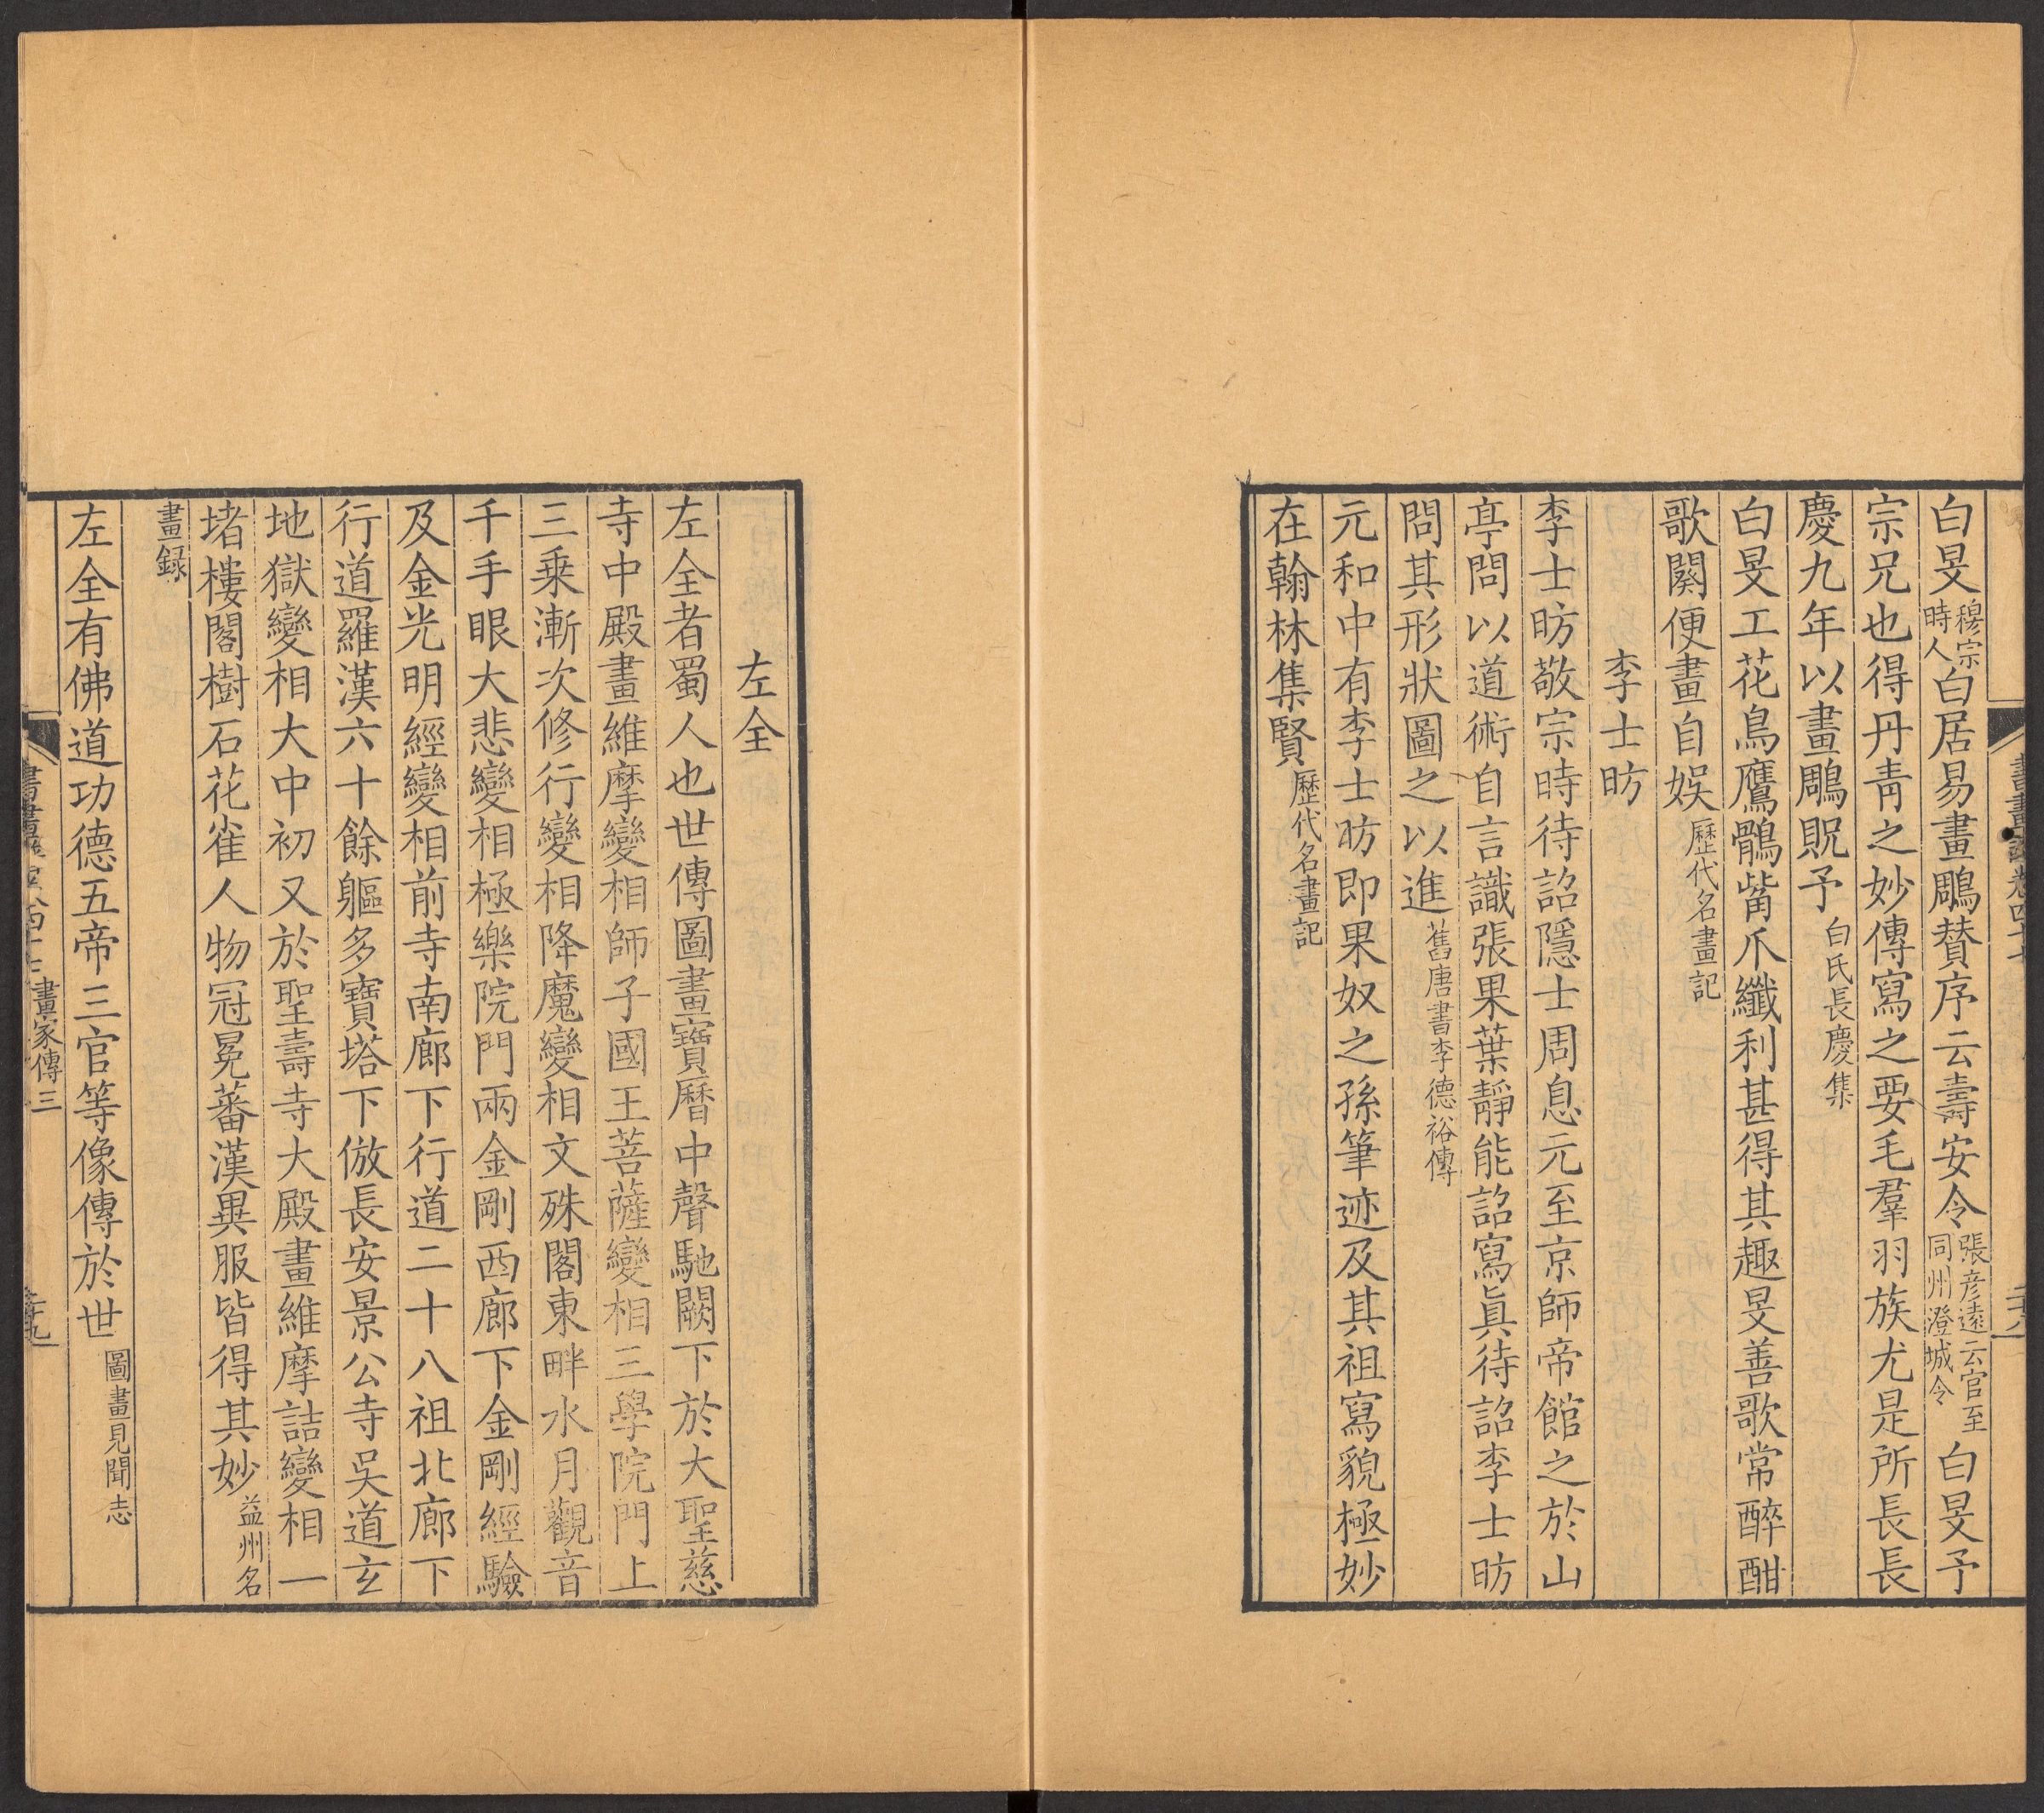 白旻穆宗時人白居易畫鵰贊序云壽安令張彦遠云官至同州澄城令白旻予
宗兄也得丹靑之妙傳寫之要毛羣羽族尤是所長長
慶九年以畫鵰貺予白氏長慶集
白旻工花鳥鷹鶻觜爪纖利甚得其趣旻善歌常醉酣
歌闋便畫自娛歷代名畫記
李士昉
李士昉敬宗時待詔隱士周息元至京師帝館之於山
亭問以道術自言識張果葉靜能詔寫眞待詔李士昉
問其形狀圖之以進舊唐書李德裕傳
元和中有李士昉即果奴之孫筆迹及其祖寫貌極妙
在翰林集賢歷代名畫記
左全
左全者蜀人也世傳圖畫寶曆中聲馳闕下於大聖慈
寺中殿畫維摩變相師子國王菩薩變相三學院門上
三乗漸次修行變相降魔變相文殊閣東畔水月觀音
千手眼大悲變相極樂院門兩金剛西廊下金剛經驗
及金光明經變相前寺南廊下行道二十八祖北廊下
行道羅漢六十餘軀多寶塔下倣長安景公寺吳道玄
地獄變相大中初又於聖壽寺大殿畫維摩詰變相一
堵樓閣樹石花雀人物冠冕蕃漢異服皆得其妙益州名
畫録
左全有佛道功德五帝三官等像傳於世圖畫見聞志
畫家傳三